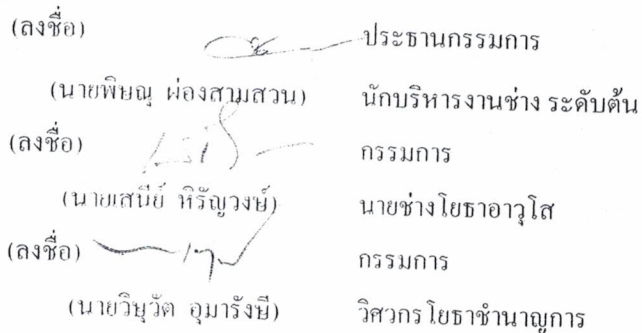 (ลงชื่อ) ประธานกรรมการ
(นายพิษณุ ผ่องสามสวน) นักบริหารงานช่าง ระดับต้น
(ลงชื่อ) กรรมการ
(นายเสนีย์ หิรัญวงษ์) นายช่างโยธาอาวุโส
(ลงชื่อ) กรรมการ
(นายวิษุวัต อุมารังษี) วิศวกรโยธาชำนาญการ